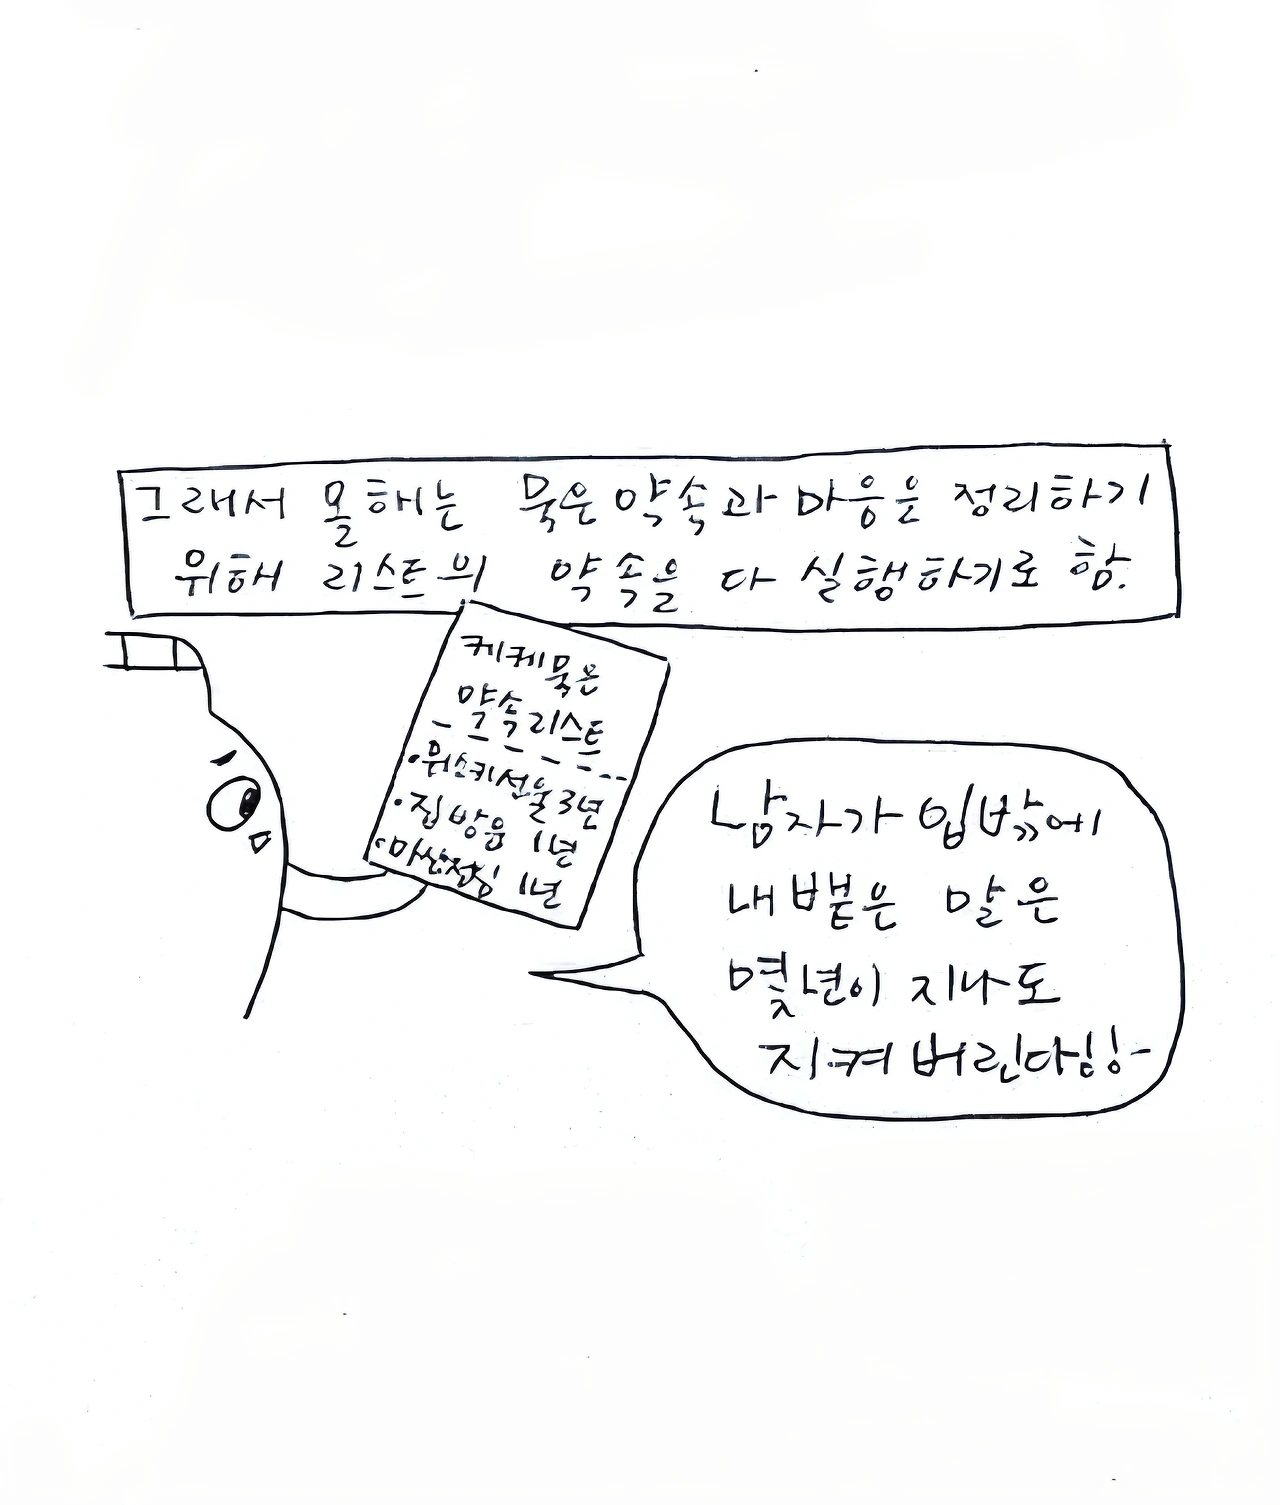 그래서 올해는 묵은 약속과 마음을 정리하기
위해 리스트의 약속을 다 실행하기로 함.
케케묵은
약속 리스트
· 위스키 선물 3년
· 집 방문 1년
· 마산 1년
남자가 입밖에
내뱉은 말은
몇년이 지나도
지켜 버린다임!-